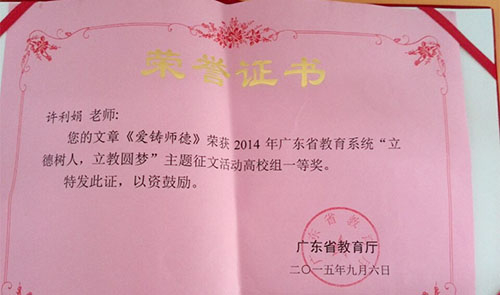 荣誉证书
许利娟 老师:
您的文章《爱铸师德》荣获 2014 年广东省教育系统“立
德树人，立教圆梦”主题征文活动高校组一等奖。
特发此证，以资鼓励。
广东省教育厅
广东省教育厅
二〇一五年九月六日